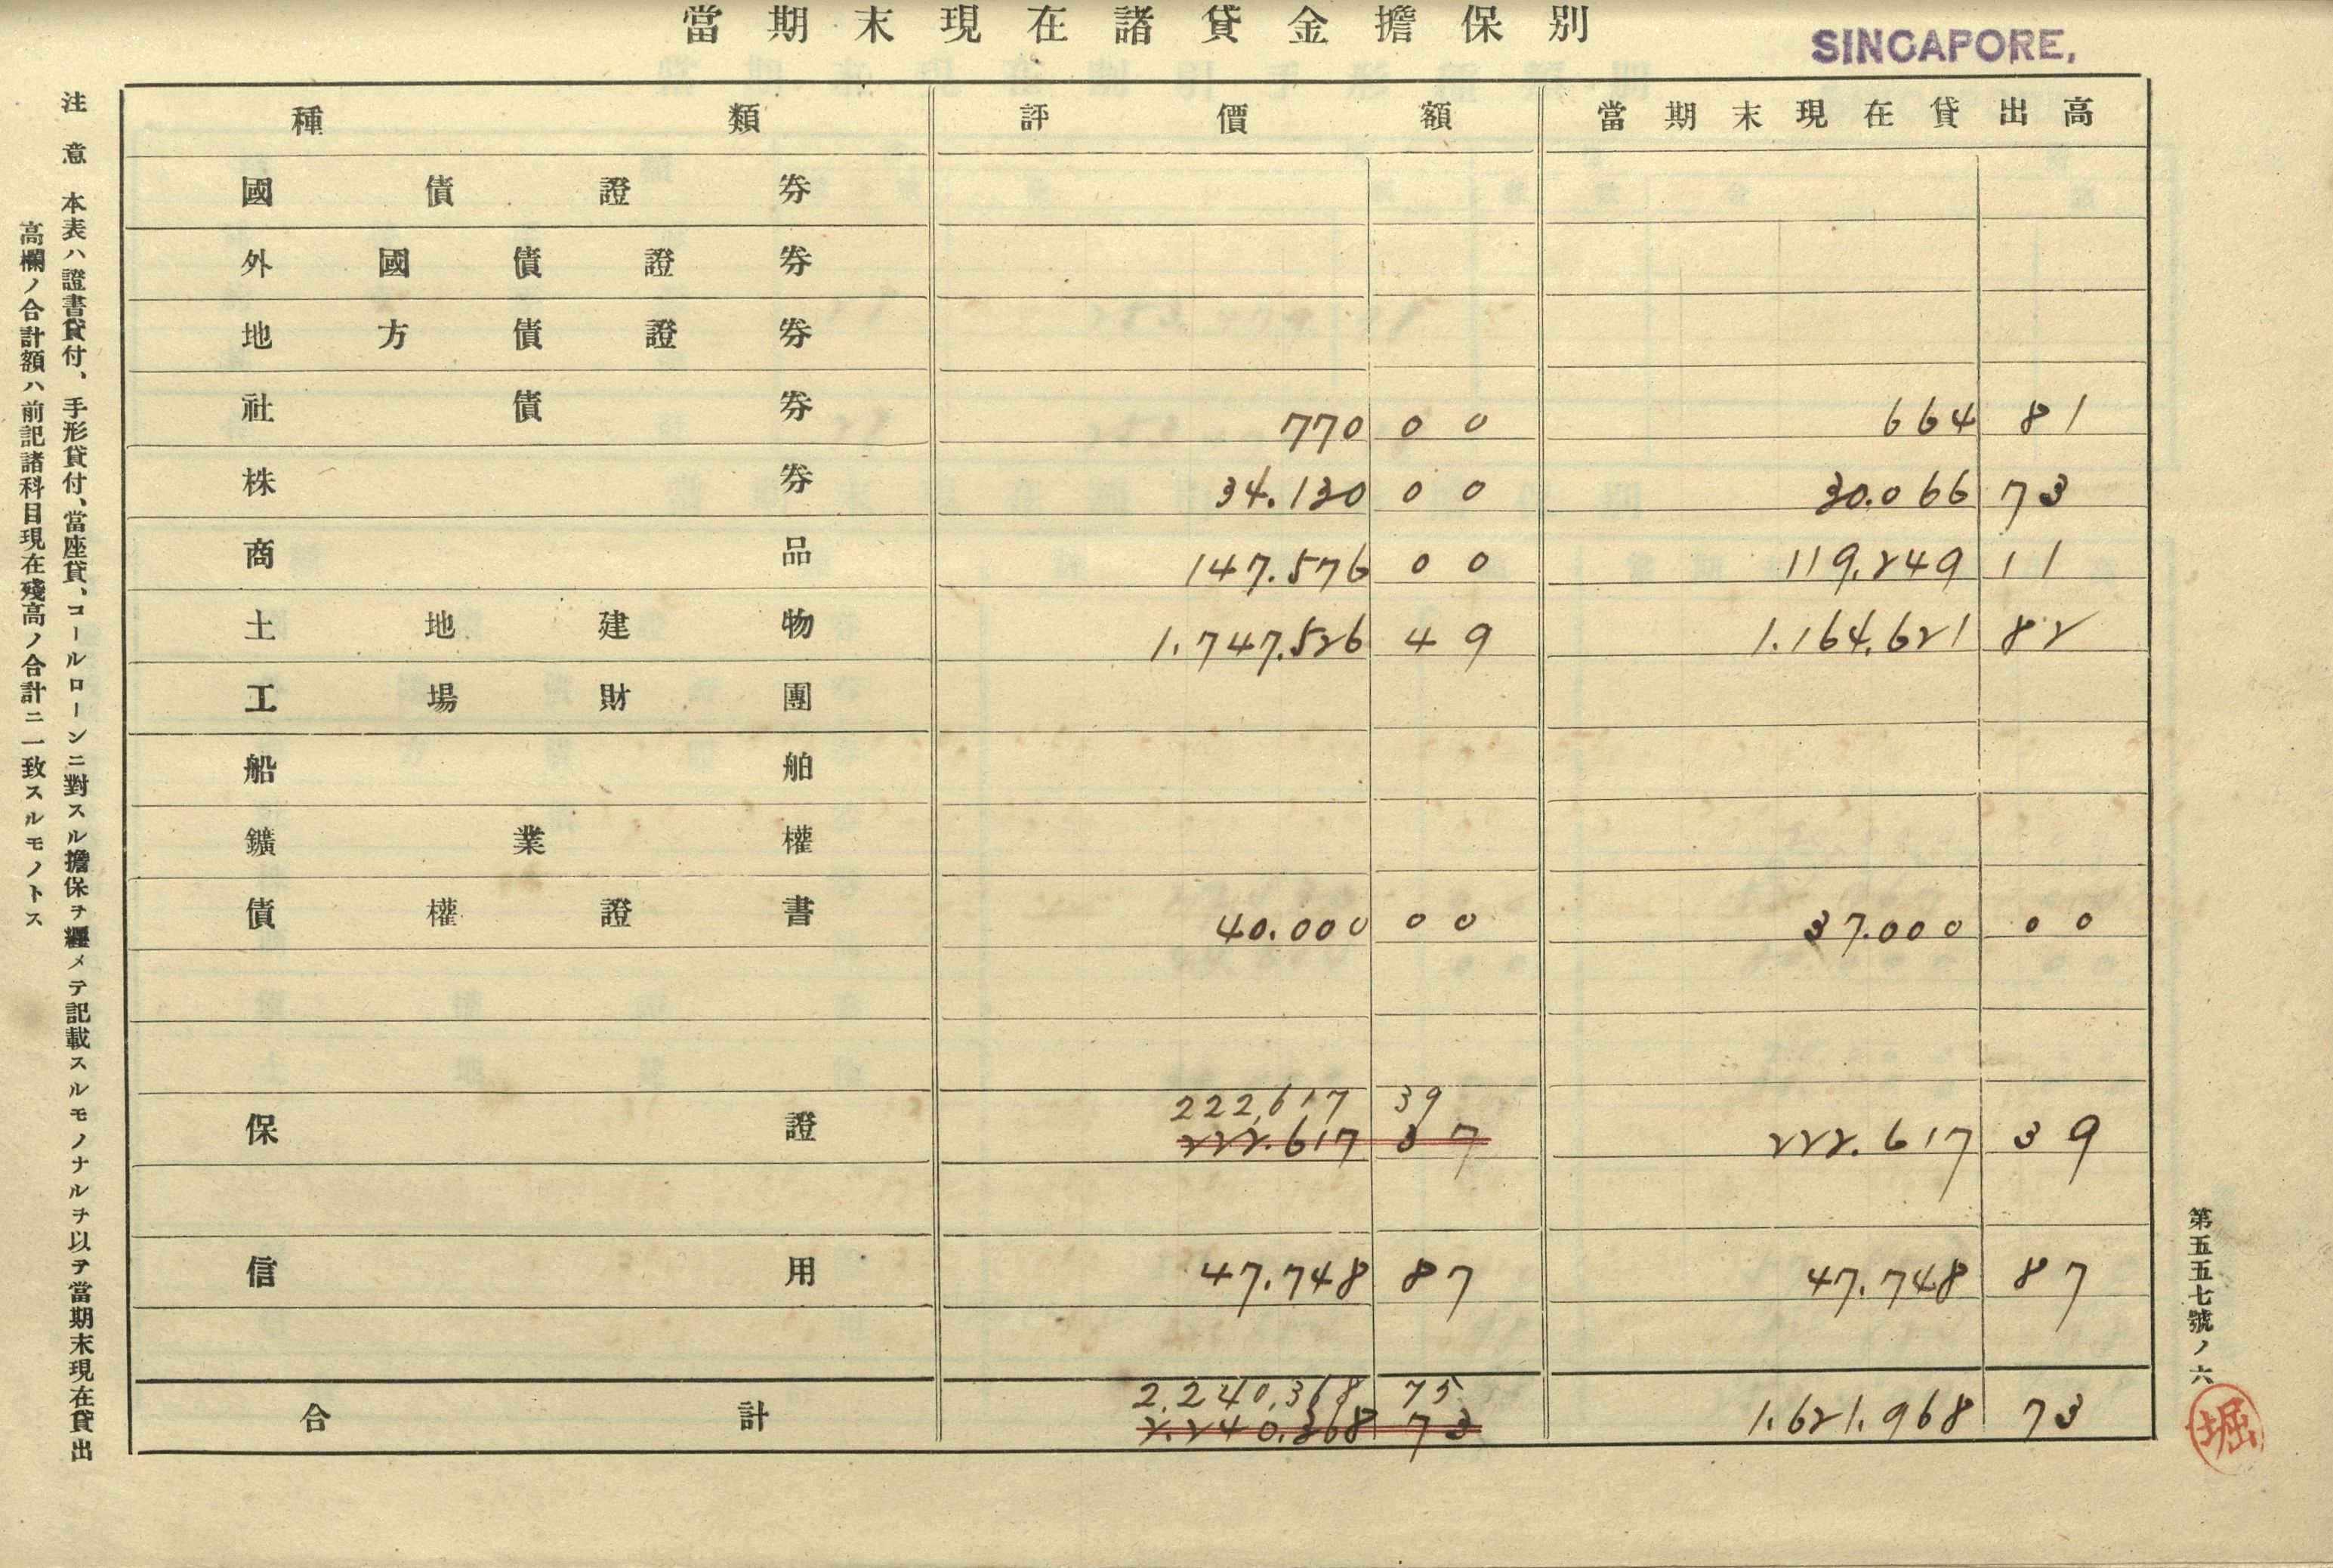 當期末現在諸貸金擔保別
SINGAPORE,
種類 評價額 當期末現在貸出高
國債證券
外國債證券
地方債證券
社債券 770 00 664 81
株券 34.130 00 30.066 73
商品 147.576 00 119.249 11
土地建物 1.747.526 49 1.164.621 82
工場財團
船舶
鑛業權
債權證書 40.000 00 37.000 00
222,617 39
保證 222.617 37 222.617 39
信用 47.748 87 47.748 87
2,240,368 75
合計 2.240.368 73 1.621.968 73
注意 本表ハ證書貸付、手形貸付、當座貸、コールローンニ對スル擔保ヲ纒メテ記載スルモノナルヲ以テ當期末現在貸出
高欄ノ合計額ハ前記諸科目現在殘高ノ合計ニ一致スルモノトス
第五五七號ノ六
堀